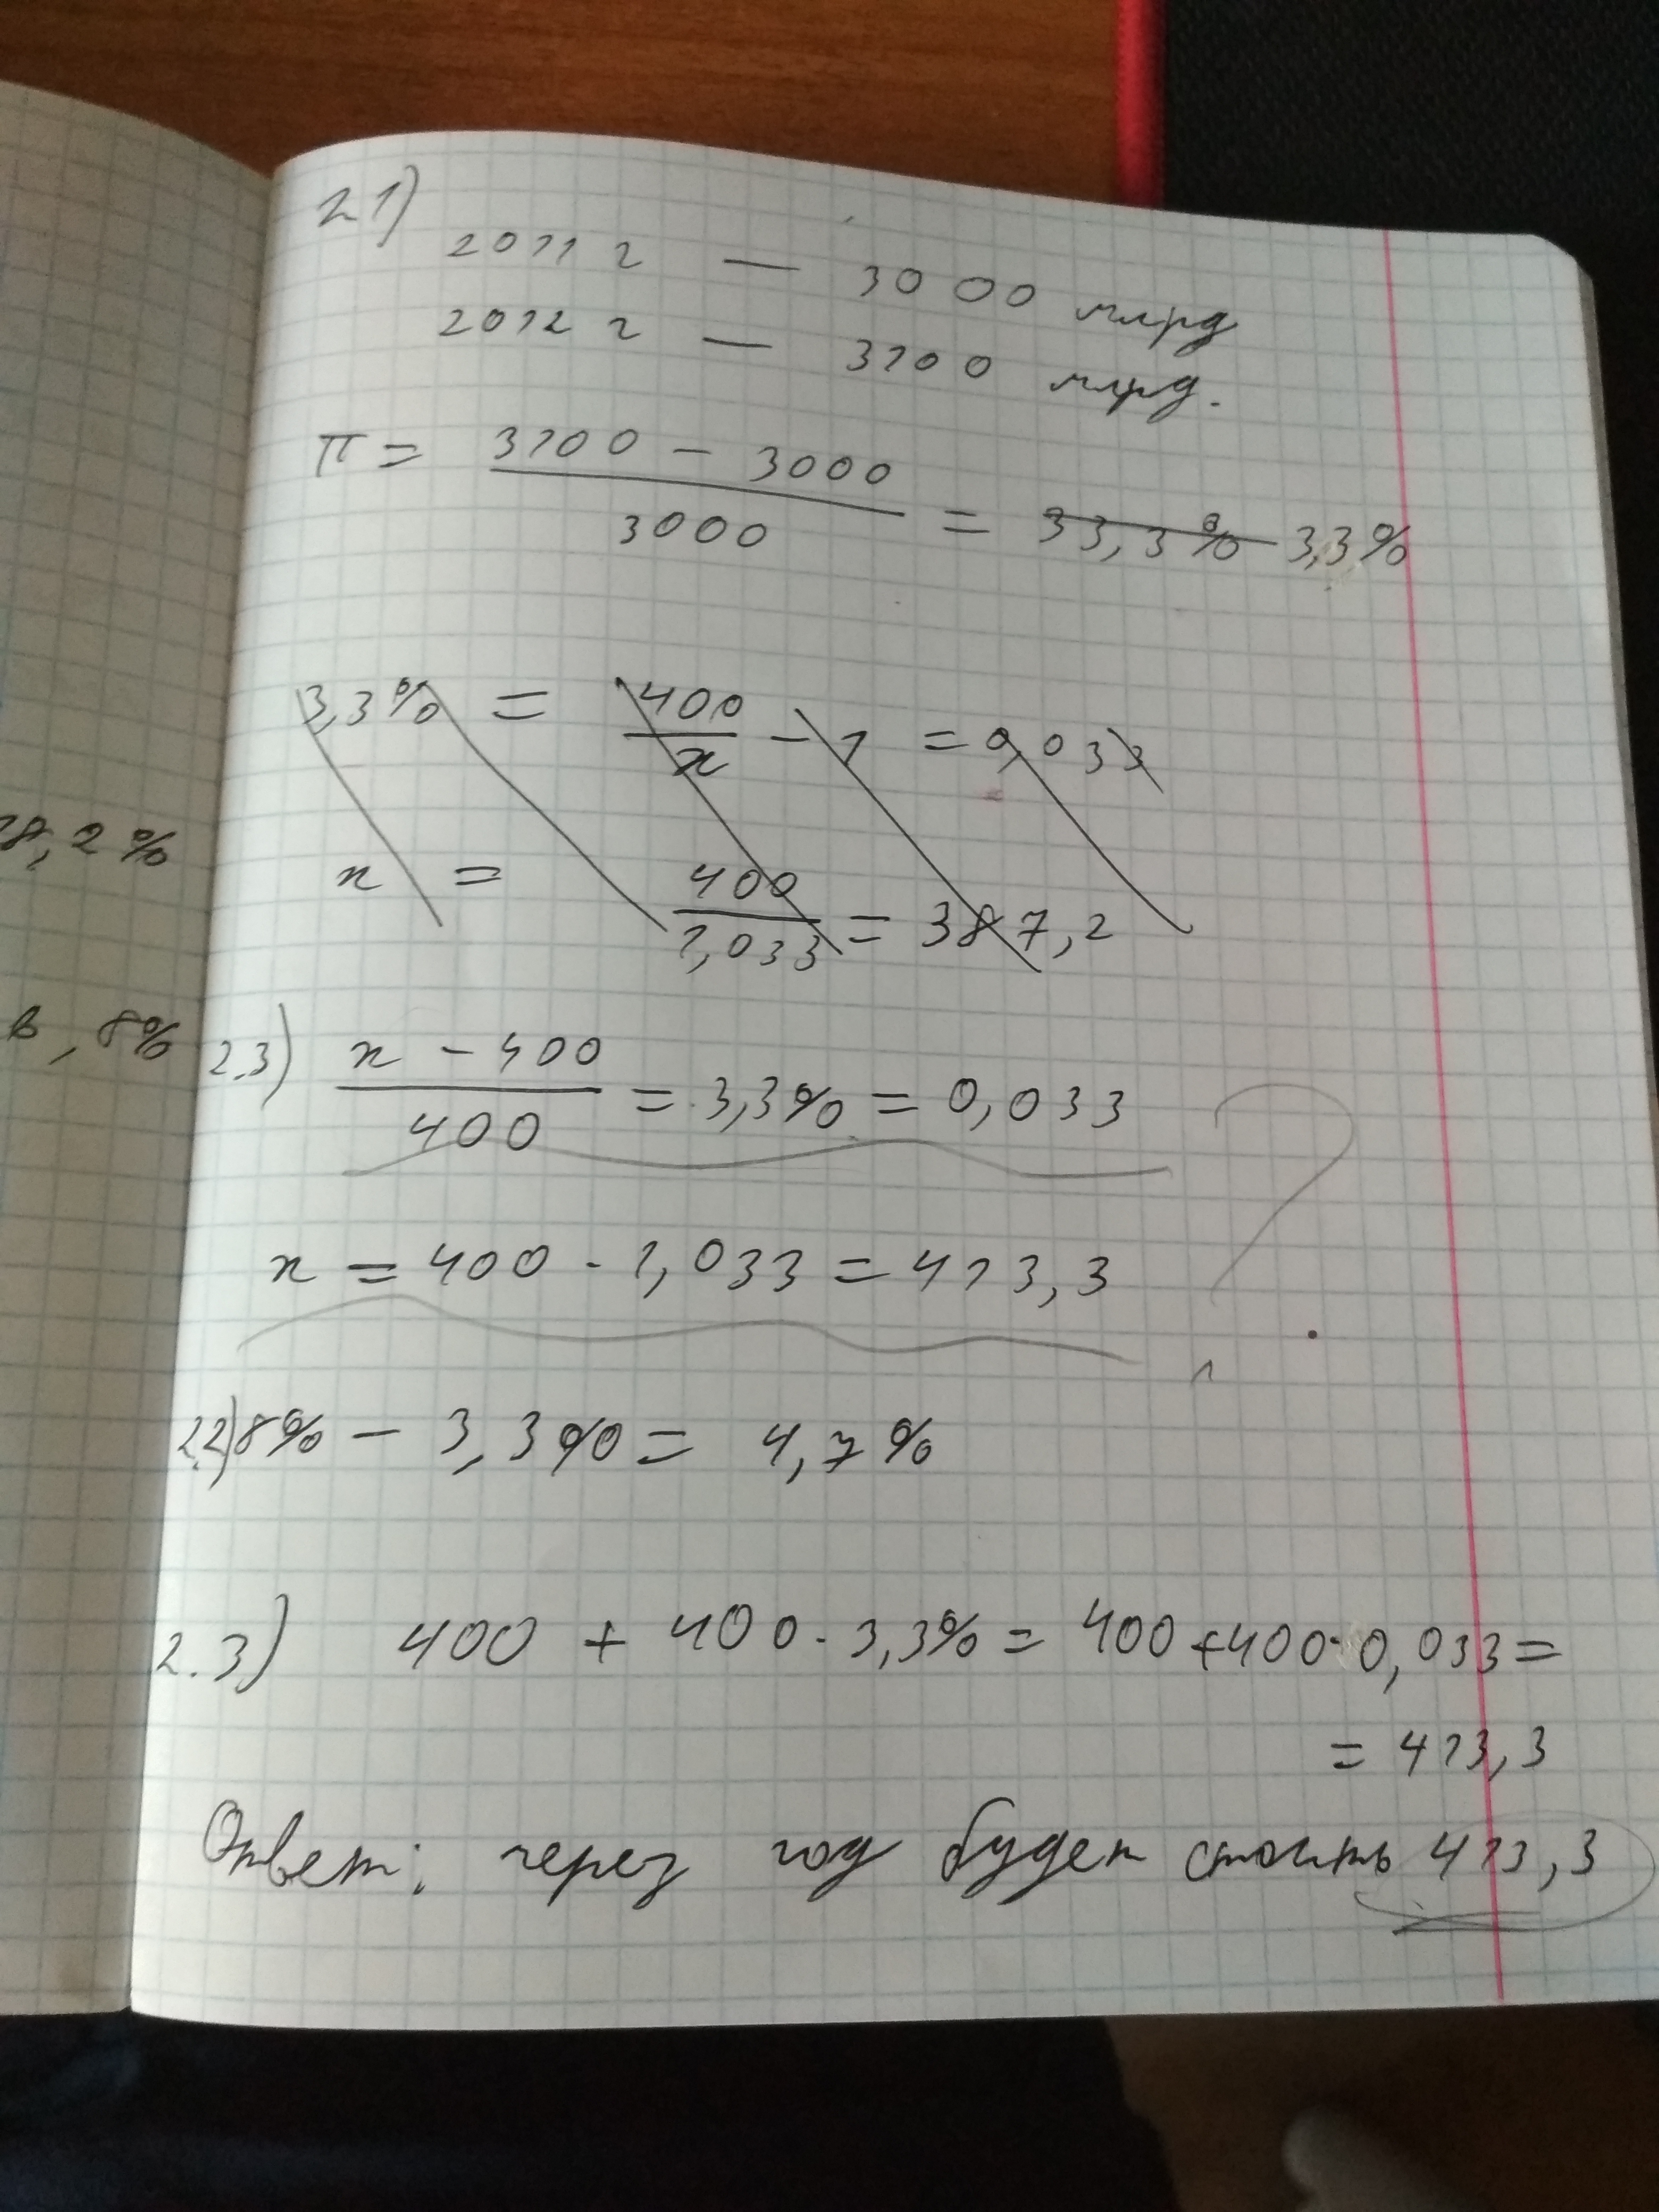 2.1)
2011 г — 3000 млрд
2012 г — 3100 млрд.
π = (3100 - 3000) / 3000 = 33,3% 3,3%
3,3% = 400/x - 1 = 0,033
x = 400/1,033 = 387,2
28,2%
2.3) (x - 400) / 400 = 3,3% = 0,033
, 8%
x = 400 · 1,033 = 413,3
2.2) 8% - 3,3% = 4,7%
2.3) 400 + 400 · 3,3% = 400 + 400 · 0,033 =
= 413,3
Ответ: через год будет стоить 413,3